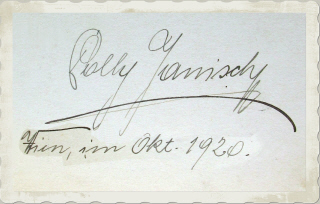 Polly Janisch
Wien, im Okt. 1920.